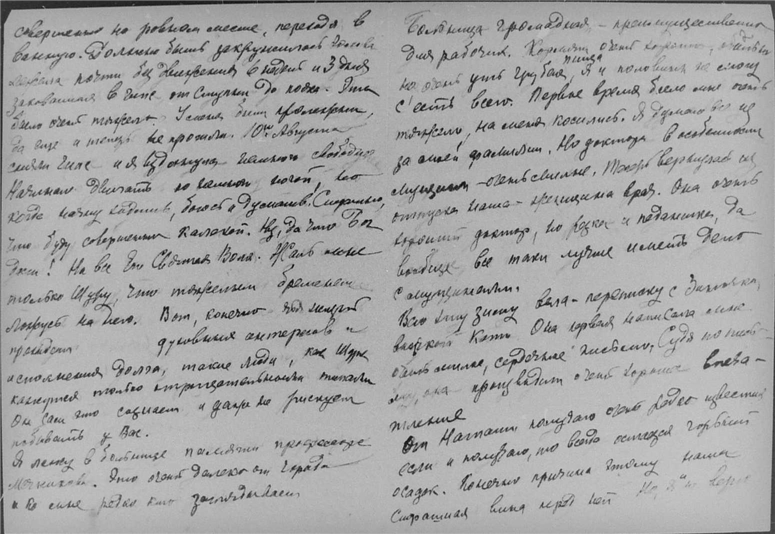 совершенно на ровном месте, переходя в
ванную. Должно быть закружилась голова
лежала почти без движения и 3 дня
закованная в гипс от ступни до
было очень тяжело. У меня были пролежни,
да еще и теперь не прошли. 10го Августа
сняли гипс и я вздохнула немного свободно
Начинаю двигать но больной ногой, но
когда начну ходить, боюсь и думать. Спорю,
что буду совершенно калекой. Ну, да что Бог
даст! На все Его Святая Воля. Жаль мне
только Шуру, что тяжелым бременем
ложусь на него. Вот, конечно для людей
духовных интересов и
исполнения долга, такие люди, как Шура
кажутся только отрицательными типами
Он сам это сознает и даже не рискует
побывать у Вас.
Я лежу в больнице памяти профессора
Мечникова. Это очень далеко от города
и ко мне редко кто заглядывает
Больница громадная - преимущественно
для рабочих. Кормят очень хорошо,
но очень уж грубая пища, Я и половины не могу
съесть всего. Первое время было мне очень
тяжело, на меня косились. Я думаю все из
за моей фамилии. Но доктора в особенности
мущины - очень милые. Теперь вернулась из
отпуска наша - женщина врач. Она очень
хороший доктор, но резка и педантка, да
вообще все таки лучше иметь дело
с мущинами.
Всю эту зиму вела - переписку с
Катей. Она первая написала мне
очень милое, сердечное письмо. Судя по письму
она производит очень хорошее впеча-
тление
От Наташи получаю очень редко известия
если и получаю, то всегда остается горький
осадок. Конечно причина этому наша
страшная вина перед ней. Но, я